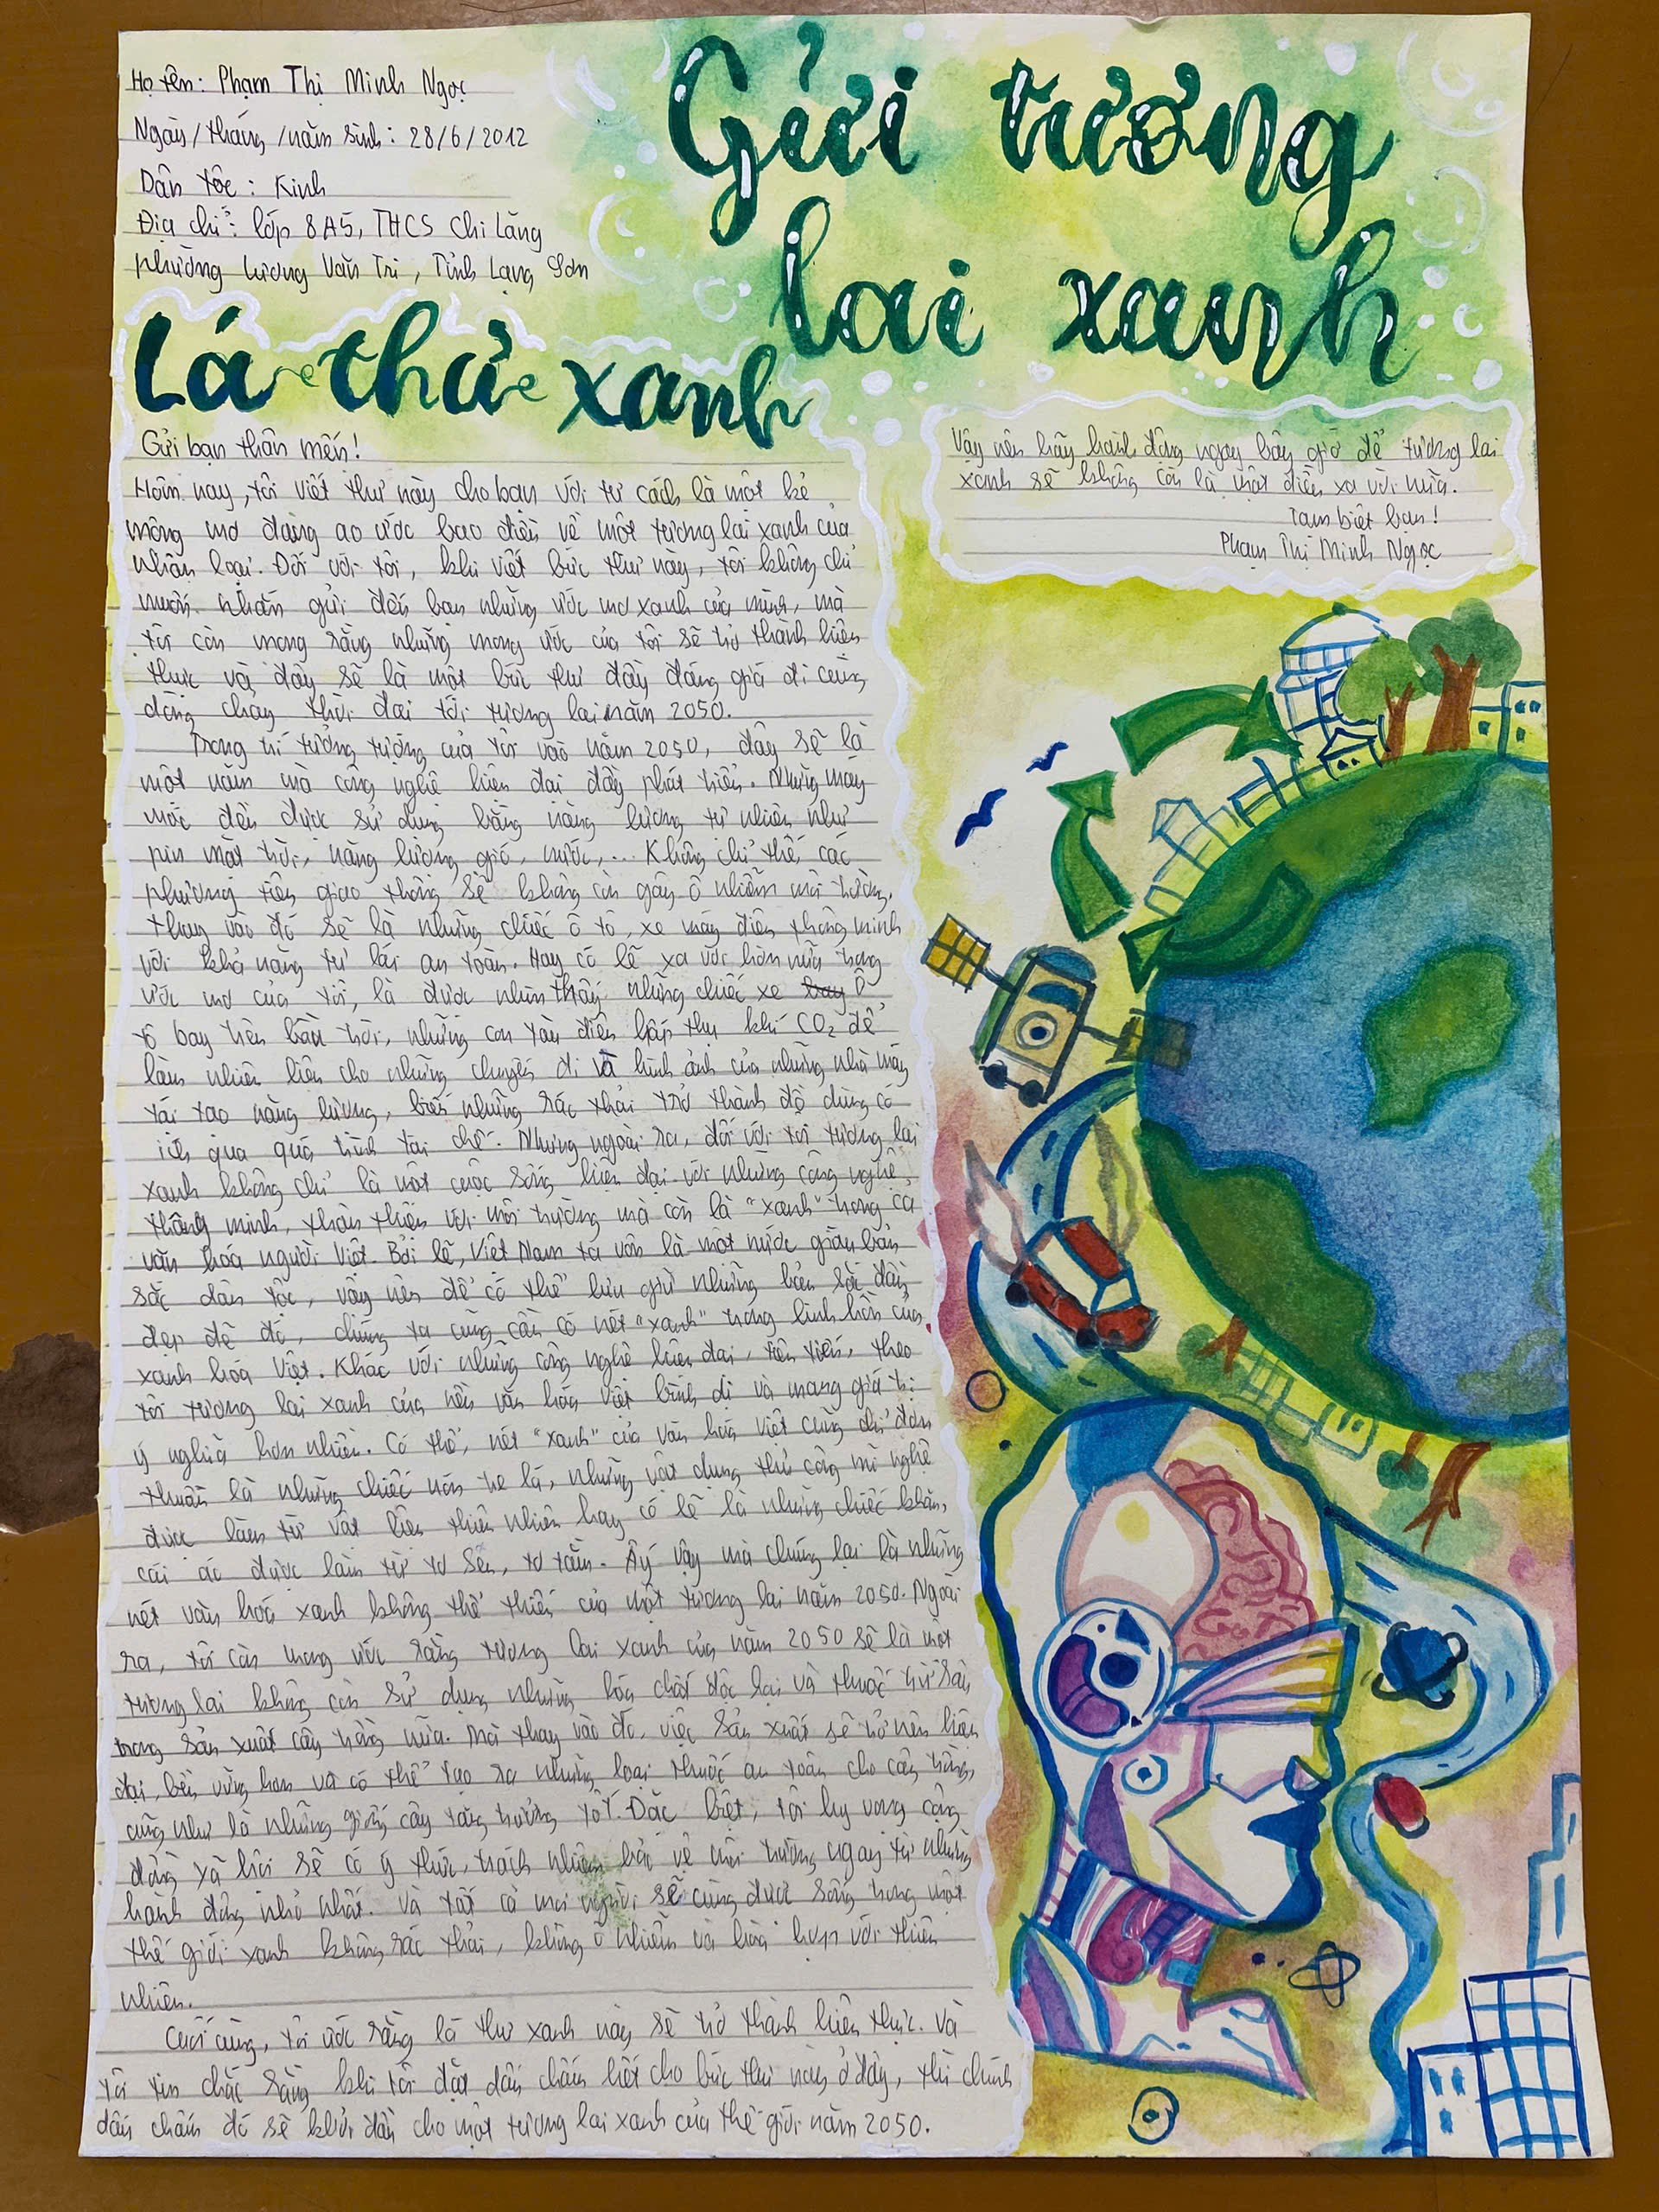 Họ tên: Phạm Thị Minh Ngọc
Ngày/tháng/năm sinh: 28/6/2012
Dân tộc: Kinh
Địa chỉ: lớp 8A5, THCS Chi Lăng
phường Lương Văn Tri, Tỉnh Lạng Sơn
Gửi tương
lai xanh
Lá thư xanh
Gửi bạn thân mến!
Hôm nay, tôi viết thư này cho bạn với tư cách là một kẻ
mộng mơ đang ao ước bao điều về một tương lai xanh của
nhân loại. Đối với tôi, khi viết bức thư này, tôi không chỉ
muốn nhắn gửi đến bạn những ước mơ xanh của mình, mà
tôi còn mong rằng những mong ước của tôi sẽ trở thành hiện
thực và đây sẽ là một bức thư đầy đáng giá đi cùng
dòng chảy thời đại tới tương lai năm 2050.
Trong trí tưởng tượng của tôi vào năm 2050, đây sẽ là
một năm mà công nghệ hiện đại đầy phát triển. Những máy
móc đều được sử dụng bằng năng lượng tự nhiên như
pin mặt trời, năng lượng gió, nước,... Không chỉ thế, các
phương tiện giao thông sẽ không còn gây ô nhiễm môi trường,
thay vào đó sẽ là những chiếc ô tô, xe máy điện thông minh
với khả năng tự lái an toàn. Hay có lẽ xa vời hơn nữa trong
ước mơ của tôi, là được nhìn thấy những chiếc xe bay ô
tô bay trên bầu trời, những con tàu điện hấp thụ khí CO₂ để
làm nhiên liệu cho những chuyến đi và hình ảnh của những nhà máy
tái tạo năng lượng, biến những rác thải trở thành đồ dùng có
ích qua quá trình tái chế. Nhưng ngoài ra, đối với tôi tương lai
xanh không chỉ là một cuộc sống hiện đại với những công nghệ
thông minh, thân thiện với môi trường mà còn là "xanh" trong cả
văn hóa người Việt. Bởi lẽ, Việt Nam ta vốn là một nước giàu bản
sắc dân tộc, vậy nên để có thể lưu giữ những bản sắc đầy
đẹp đẽ đó, chúng ta cũng cần có nét "xanh" trong linh hồn của
xanh hóa Việt. Khác với những công nghệ hiện đại, tiên tiến, theo
tôi tương lai xanh của nền văn hóa Việt bình dị và mang giá trị
ý nghĩa hơn nhiều. Có thể, nét "xanh" của văn hóa Việt cũng chỉ đơn
thuần là những chiếc nón tre lá, những vật dụng thủ công mĩ nghệ
được làm từ vật liệu thiên nhiên hay có lẽ là những chiếc khăn,
cái áo được làm từ tơ sen, tơ tằm. Ấy vậy mà chúng lại là những
nét văn hoá xanh không thể thiếu của một tương lai năm 2050. Ngoài
ra, tôi còn mong ước rằng tương lai xanh của năm 2050 sẽ là một
tương lai không còn sử dụng những hóa chất độc hại và thuốc trừ sâu
trong sản xuất cây trồng nữa. Mà thay vào đó, việc sản xuất sẽ trở nên hiện
đại, bền vững hơn và có thể tạo ra những loại thuốc an toàn cho cây trồng,
cũng như là những giống cây tăng trưởng tốt. Đặc biệt, tôi hy vọng cộng
đồng xã hội sẽ có ý thức, trách nhiệm bảo vệ môi trường ngay từ những
hành động nhỏ nhất. Và tất cả mọi người sẽ cùng được sống trong một
thế giới xanh không rác thải, không ô nhiễm và hòa hợp với thiên
nhiên.
Cuối cùng, tôi ước rằng lá thư xanh này sẽ trở thành hiện thực. Và
tôi tin chắc rằng khi tôi đặt dấu chấm hết cho bức thư này ở đây, thì chính
dấu chấm đó sẽ khởi đầu cho một tương lai xanh của thế giới năm 2050.
Vậy nên hãy hành động ngay bây giờ để tương lai
xanh sẽ không còn là một điều xa vời nữa.
Tạm biệt bạn!
Phạm Thị Minh Ngọc